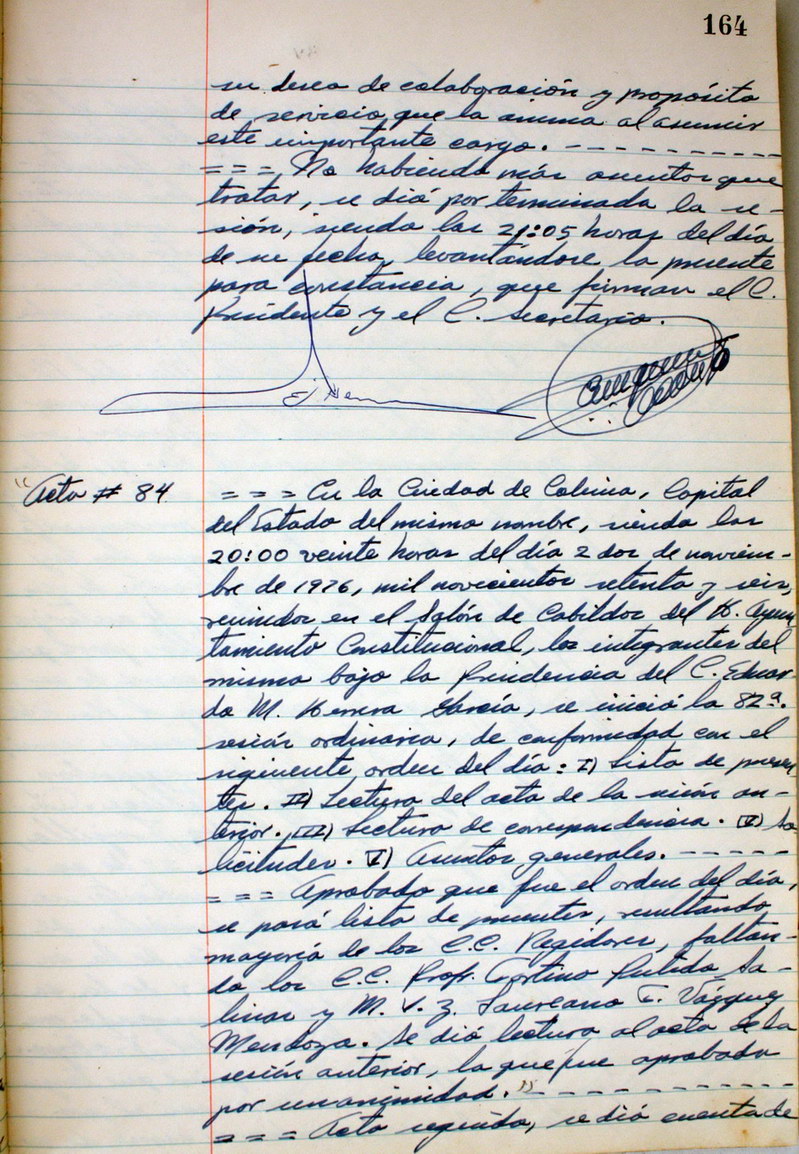 164
su deseo de colaboración y propósito
de servicio que la anima al asumir
este importante cargo. - - - - - - - - - -
= = = No habiendo más asuntos que
tratar, se dió por terminada la se-
sión, siendo las 21:05 horas del día
de su fecha, levantándose la presente
para constancia, que firman el C.
Presidente y el C. Secretario.
Acta # 84
= = = En la Ciudad de Colima, Capital
del Estado del mismo nombre, siendo las
20:00 veinte horas del día 2 dos de noviem-
bre de 1976, mil novecientos setenta y seis,
reunidos en el Salón de Cabildos del H. Ayun
tamiento Constitucional, los integrantes del
mismo bajo la Presidencia del C. Eduar-
do M. Herrera García, se inició la 82ª.
sesión ordinaria, de conformidad con el
siguiente orden del día: I) Lista de presen
tes. II) Lectura del acta de la sesión an-
terior. III) Lectura de correspondencia. IV) So
licitudes. V) Asuntos generales. - - - - - -
= = = Aprobado que fue el orden del día,
se pasó lista de presentes, resultando
mayoría de los C.C. Regidores, faltan-
do los C.C. Profr. Sa-
linas y M. V. Z. Laureano Vázquez
Mendoza. Se dió lectura al acta de la
sesión anterior, la que fue aprobada
por unanimidad." - - - - - - - - - -
= = = Acto seguido, se dió cuenta de